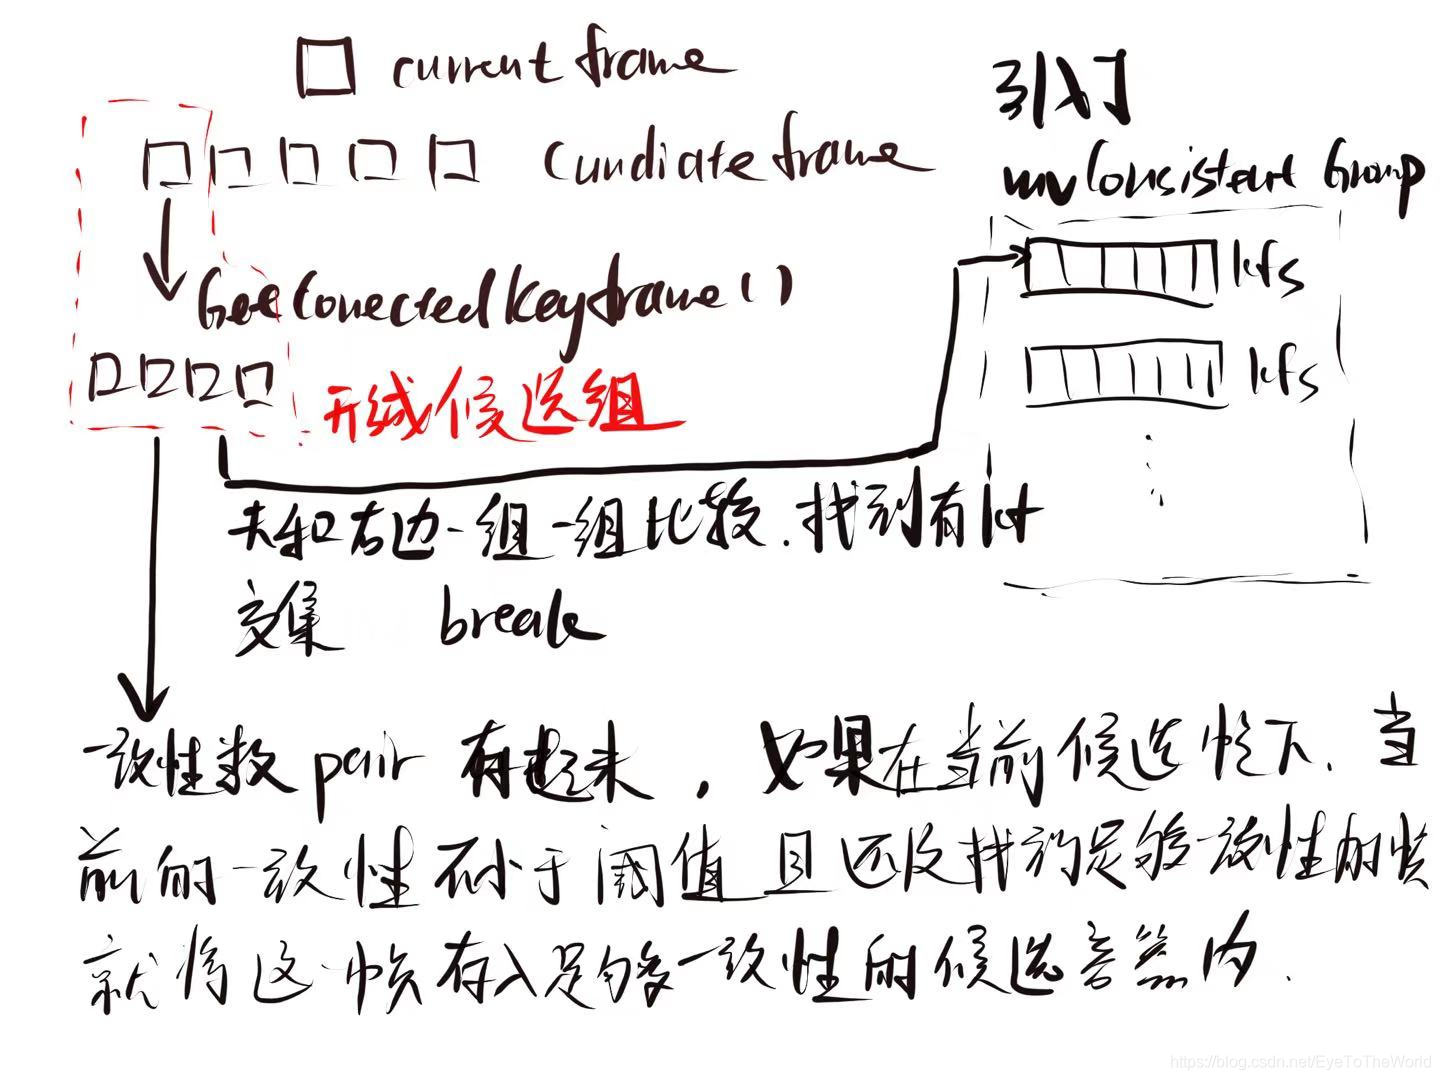 current frame
引入了
mvConsistent Group
Cundiate frame
kfs
GetConectedKeyframe()
kfs
形成候选组
去和右边一组一组比较.找到有kf
交集 break
一致性数 pair 存起来,如果在当前候选帧下、当
前的一致性不小于阈值 且还没找到足够一致性的帧
就将这一帧存入足够一致性的候选容器内.
https://blog.csdn.net/EyeToTheWorld